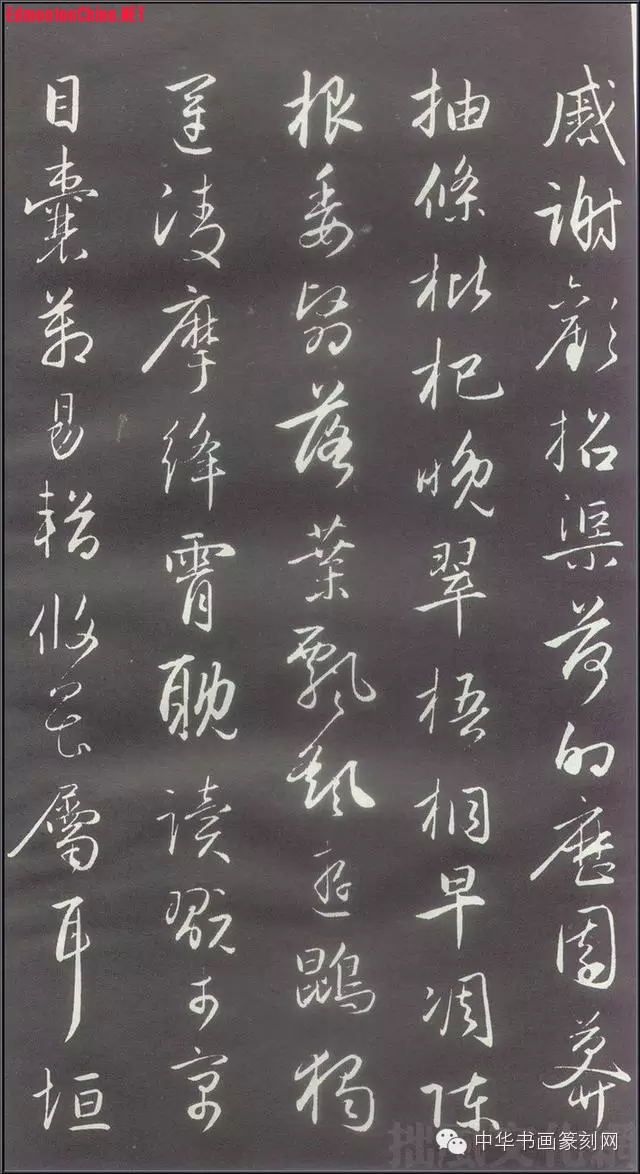 EdmontonChina.NET
慼謝歡招渠荷的歷園莽
抽條枇杷晚翠梧桐早凋陳
根委翳落葉飄颻遊鵾獨
運淩摩絳霄耽讀翫市寓
目囊箱易輶攸畏屬耳垣
中华书画篆刻网